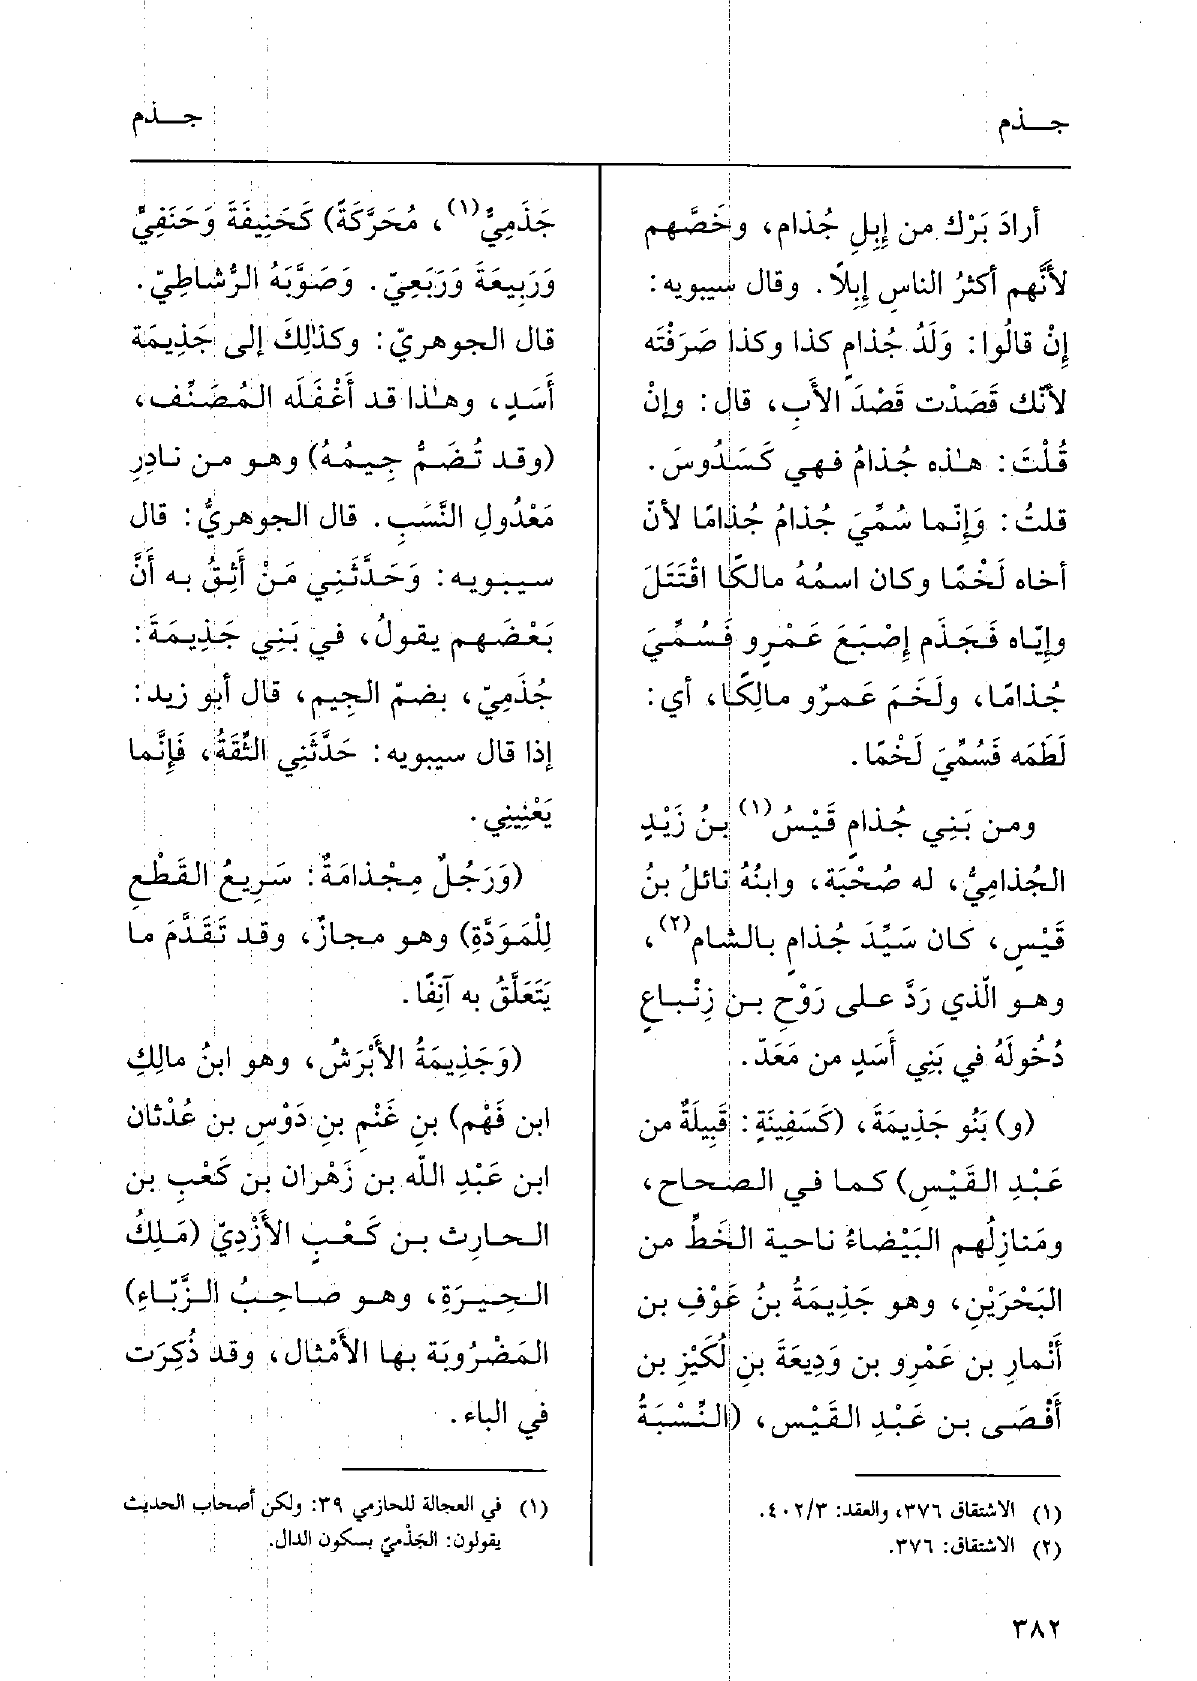 جـــذم
جـــذم
أرادَ بَرْك من إِبِلِ جُذام، وخَصَّهم
لأنَّهم أكثرُ الناسِ إِبلًا. وقال سيبويه:
إِنْ قالُوا: وَلَدُ جُذامٍ كذا وكذا صَرَفْتَه
لأنّك قَصَدْت قَصْدَ الأبِ، قال: وإنْ
قُلْتَ: هٰذه جُذامُ فهي كَسَدُوسَ.
قلتُ: وَإنّما سُمِّيَ جُذامُ جُذامًا لأنّ
أخاه لَخْمًا وكان اسمُهُ مالكًا اقْتَتَلَ
وإيّاه فَجَذَم إصْبَعَ عَمْرٍو فَسُمِّيَ
جُذامًا، ولَخَمَ عَمرٌو مالِكًا، أي:
لَطَمَه فَسُمِّيَ لَخْمًا.
ومن بَنِي جُذامٍ قَيْسُ(١) بنُ زَيْدٍ
الجُذاميُّ، له صُحْبَة، وابنُهُ نائلُ بنُ
قَيْسٍ، كان سَيِّدَ جُذامٍ بالشام(٢)،
وهو الّذي رَدَّ على رَوْحِ بنِ زِنْباعٍ
دُخُولَهُ في بَنِي أَسَدٍ من مَعَدّ.
(و) بَنُو جَذِيمَةَ، (كَسَفِينَةٍ: قَبِيلَةٌ من
عَبْدِ القَيْسِ) كما في الصحاح،
ومَنازِلُهم البَيْضاءُ ناحية الخَطِّ من
البَحْرَيْنِ، وهو جَذِيمَةُ بنُ عَوْفِ بن
أَنْمارِ بن عَمْرِو بن وَدِيعَةَ بنِ لُكَيْزِ بن
أَفْصَى بن عَبْدِ القَيْس، (النِّسْبَةُ
(١) الاشتقاق ٣٧٦، والعقد: ٤٠٢/٣.
(٢) الاشتقاق: ٣٧٦.
جَذَمِيٌّ(١)، مُحَرَّكَةً) كَحَنِيفَةَ وَحَنَفِيٍّ
وَرَبِيعَةَ وَرَبَعِيّ. وَصَوَّبَهُ الرُّشاطِيّ.
قال الجوهريّ: وكذٰلِكَ إلى جَذِيمَة
أَسَدٍ، وهٰذا قد أَغْفَلَه المُصَنِّف،
(وقد تُضَمُّ جِيمُهُ) وهو من نادِرِ
مَعْدُولِ النَّسَبِ. قال الجوهريُّ: قال
سيبويه: وَحَدَّثَنِي مَنْ أَثِقُ به أَنَّ
بَعْضَهم يقولُ، في بَنِي جَذِيمَةَ:
جُذَمِيّ، بضمّ الجِيم، قال أبو زيد:
إذا قال سيبويه: حَدَّثَنِي الثِّقَةُ، فَإِنَّما
يَعْنِينِي.
(وَرَجُلٌ مِجْذامَةٌ: سَرِيعُ القَطْعِ
لِلْمَوَدَّةِ) وهو مجازٌ، وقد تَقَدَّمَ ما
يَتَعَلَّقُ به آنِفًا.
(وَجَذِيمَةُ الأَبْرَشُ، وهو ابنُ مالِكِ
ابن فَهْم) بن غَنْمِ بنِ دَوْسِ بن عُدْثان
ابن عَبْدِ اللّه بن زَهْران بن كَعْبِ بن
الحارِث بن كَعْبٍ الأَزْدِيّ (مَلِكُ
الحِيرَةِ، وهو صاحِبُ الزَّبّاءِ)
المَضْرُوبَة بها الأَمْثال، وقد ذُكِرَت
في الباء.
(١) في العجالة للحازمي ٣٩: ولكن أصحاب الحديث
يقولون: الجَذْمىّ بسكون الدال.
٣٨٢